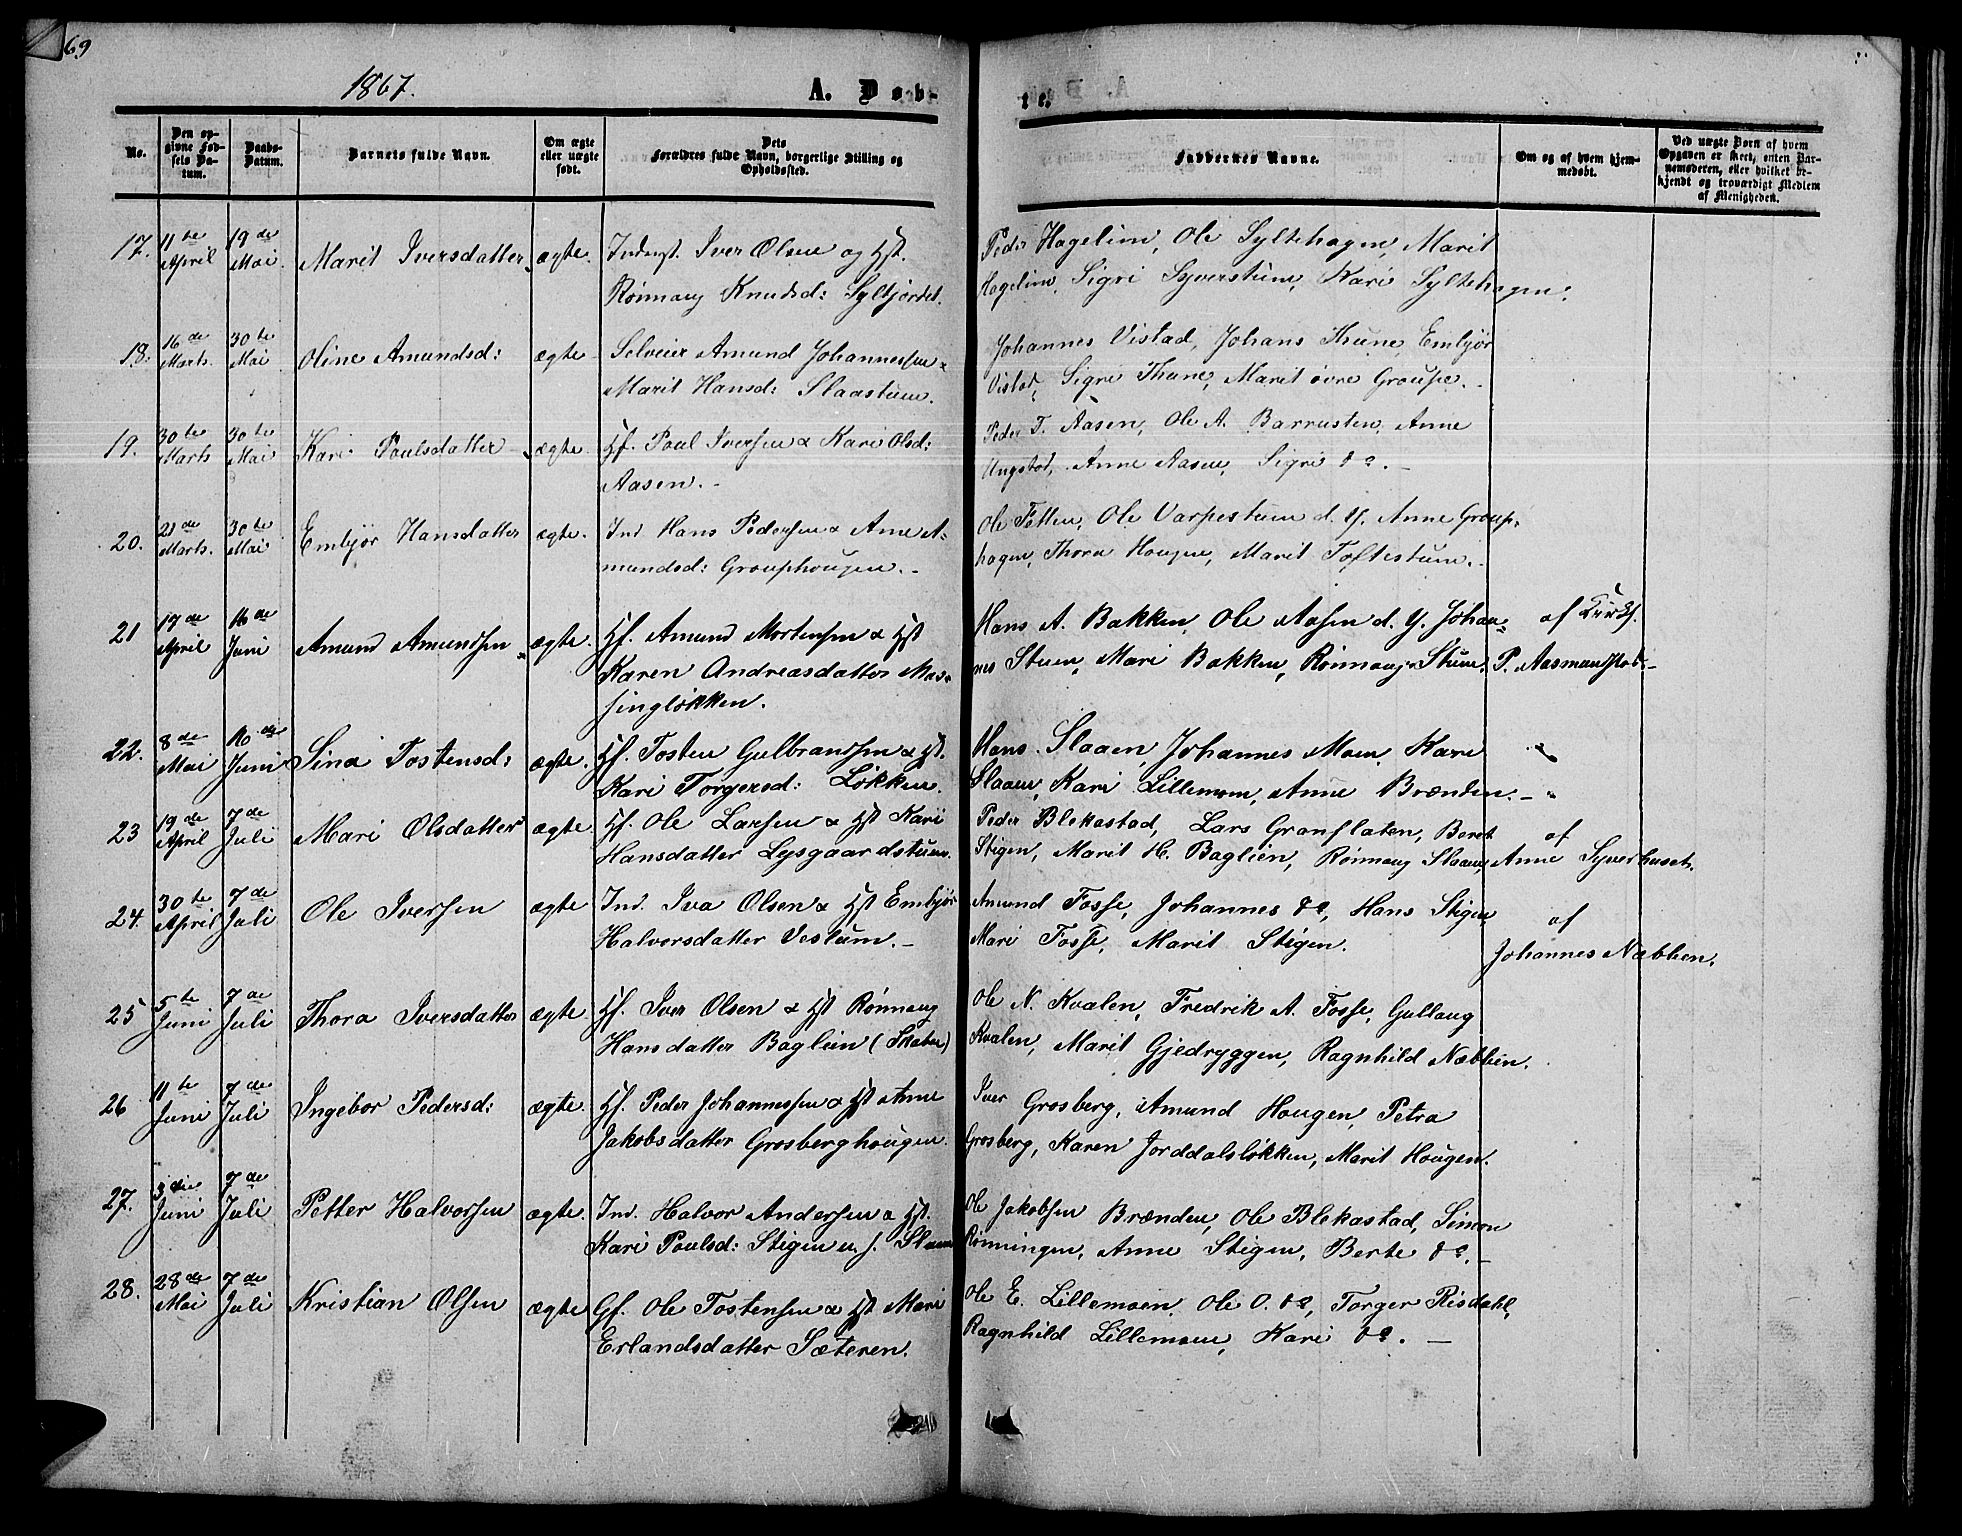 69
1867.
A. Døb-
te.
No.
Den op-
givne Fød-
sels Da-
tum.
Daabs-
Datum.
Barnets fulde Navn.
Om ægte
eller uægte
født.
Dets
Forældres fulde Navn, borgerlige Stilling og
Opholdssted.
Faddernes Navne.
Om og af hvem hjem-
medøbt.
Ved uægte Børn af hvem
Opgaven er skeet, enten Bar-
nemoderen, eller hvilket be-
kjendt og troværdigt Medlem
af Menigheden.
17. 11te April 19de Mai. Marit Iversdatter ægte. Inderst. Iver Olsen og Hst.
Rønnaug Knudsd: Syltjordet.
Peder Hagelien, Ole Syltehagen, Marit
Hagelien, Sigri Syverstuen, Kari Syltehagen.
18. 16de Marts. 30te Mai Oline Amundsd: ægte Selveier Amund Johannessen &
Marit Hansd: Slaastuen.
Johannes Vistad, Johans Thune, Embjør
Vistad, Sigri Thune, Marit øvre Groupe.
19. 30te Marts 30te Mai Kari Poulsdatter ægte. Hf. Poul Iversen & Kari Olsd:
Aasen.
Peder T. Aasen, Ole A. Barrusten, Anne
Ungstad, Anne Aasen, Sigri do.
20. 21de Marts. 30te Mai Embjør Hansdatter ægte. Ind. Hans Pedersen & Anne A-
mundsd: Grouphougen.
Ole Fetten, Ole Varpestuen d. y. Anne Group-
hagen, Thora Hougen, Marit Toftestuen.
21 17de April 16de Juni Amund Amundsen ægte. Hf. Amund Mortensen & Hst
Karen Andreasdatter Mes-
singløkken.
Hans A. Bakken, Ole Aasen d. y. Johan-
nes Stuen, Mari Bakken, Rønnaug Stuen.
af Kirks.
P. Aasmunstad.
22. 8de Mai 16de Juni Sina Tostensd: ægte. Hf. Tosten Gulbrandsen & Hst.
Kari Torgersd: Løkken.
Hans Slaaen, Johannes Moen, Kari
Slaaen, Kari Lillemoen, Anne Brænden.
23 19de April 7de Juli Mari Olsdatter ægte Hf. Ole Larsen & Hst Kari
Hansdatter Lysgaardstuen.
Peder Blekastad, Lars Granflaten, Beret
Stigen, Marit H. Baglien, Rønnaug Slaaen,
af
Anne Syverhuset.
24. 30te April 7de Juli Ole Iversen ægte Ind. Iva Olsen & Hst Embjør
Halvorsdatter Vestum.
Amund Fosse, Johannes do, Hans Stigen
Mari Fosse, Marit Stigen.
af
Johannes Næbben.
25 5te Juni 7de Juli Thora Iversdatter ægte Hf. Iver Olsen & Hst Rønnaug
Hansdatter Baglien (Skaten)
Ole N. Kvalen, Fredrik A. Fosse, Gullaug
Kvalen, Marit Gjedryggen, Ragnhild Næbben.
26 11te Juni 7de Juli Ingebor Pedersd: ægte. Hf. Peder Johannessen & Hst Anne
Jakobsdatter Grosberghougen.
Iver Grosberg, Amund Hougen, Petra
Grosberg, Karen Jorddalsløkken, Marit Hougen.
27. 3die Juni 7de Juli Petter Halvorsen ægte. Ind. Halvor Andersen & Hst.
Kari Poulsd: Stigen u. s. Slaaen
Ole Jakobsen Brænden, Ole Blekastad, Simon
Rønningen, Anne Stigen, Berte do.
28. 28de Mai 7de Juli Kristian Olsen ægte Gf. Ole Tostensen & Hst Mari
Erlandsdatter Sæteren.
Ole E. Lillemoen, Ole O. do, Torger Risdahl,
Ragnhild Lillemoen, Kari do.